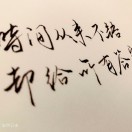 时间从来不语
却给所有答